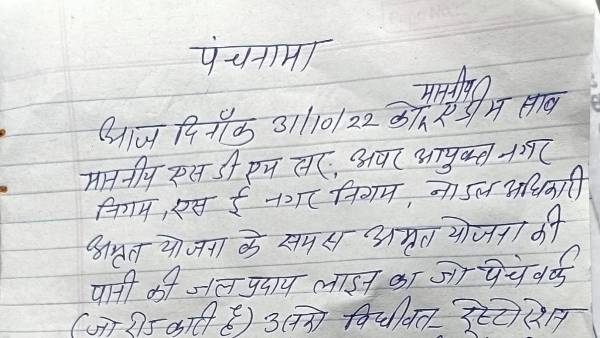 पंचनामा
माननीय
आज दिनाँक 31/10/22 को ए डी म साब
माननीय एस डी एम सर, अपर आयुक्त नगर
निगम, एस ई नगर निगम, नोडल अधिकारी
अमृत योजना के समस अमृत योजना की
पानी की जल प्रदाय लाइन का जो पेचवर्क
(जो रोड काटी है) उसमे विधीवत रेस्टोरेशन